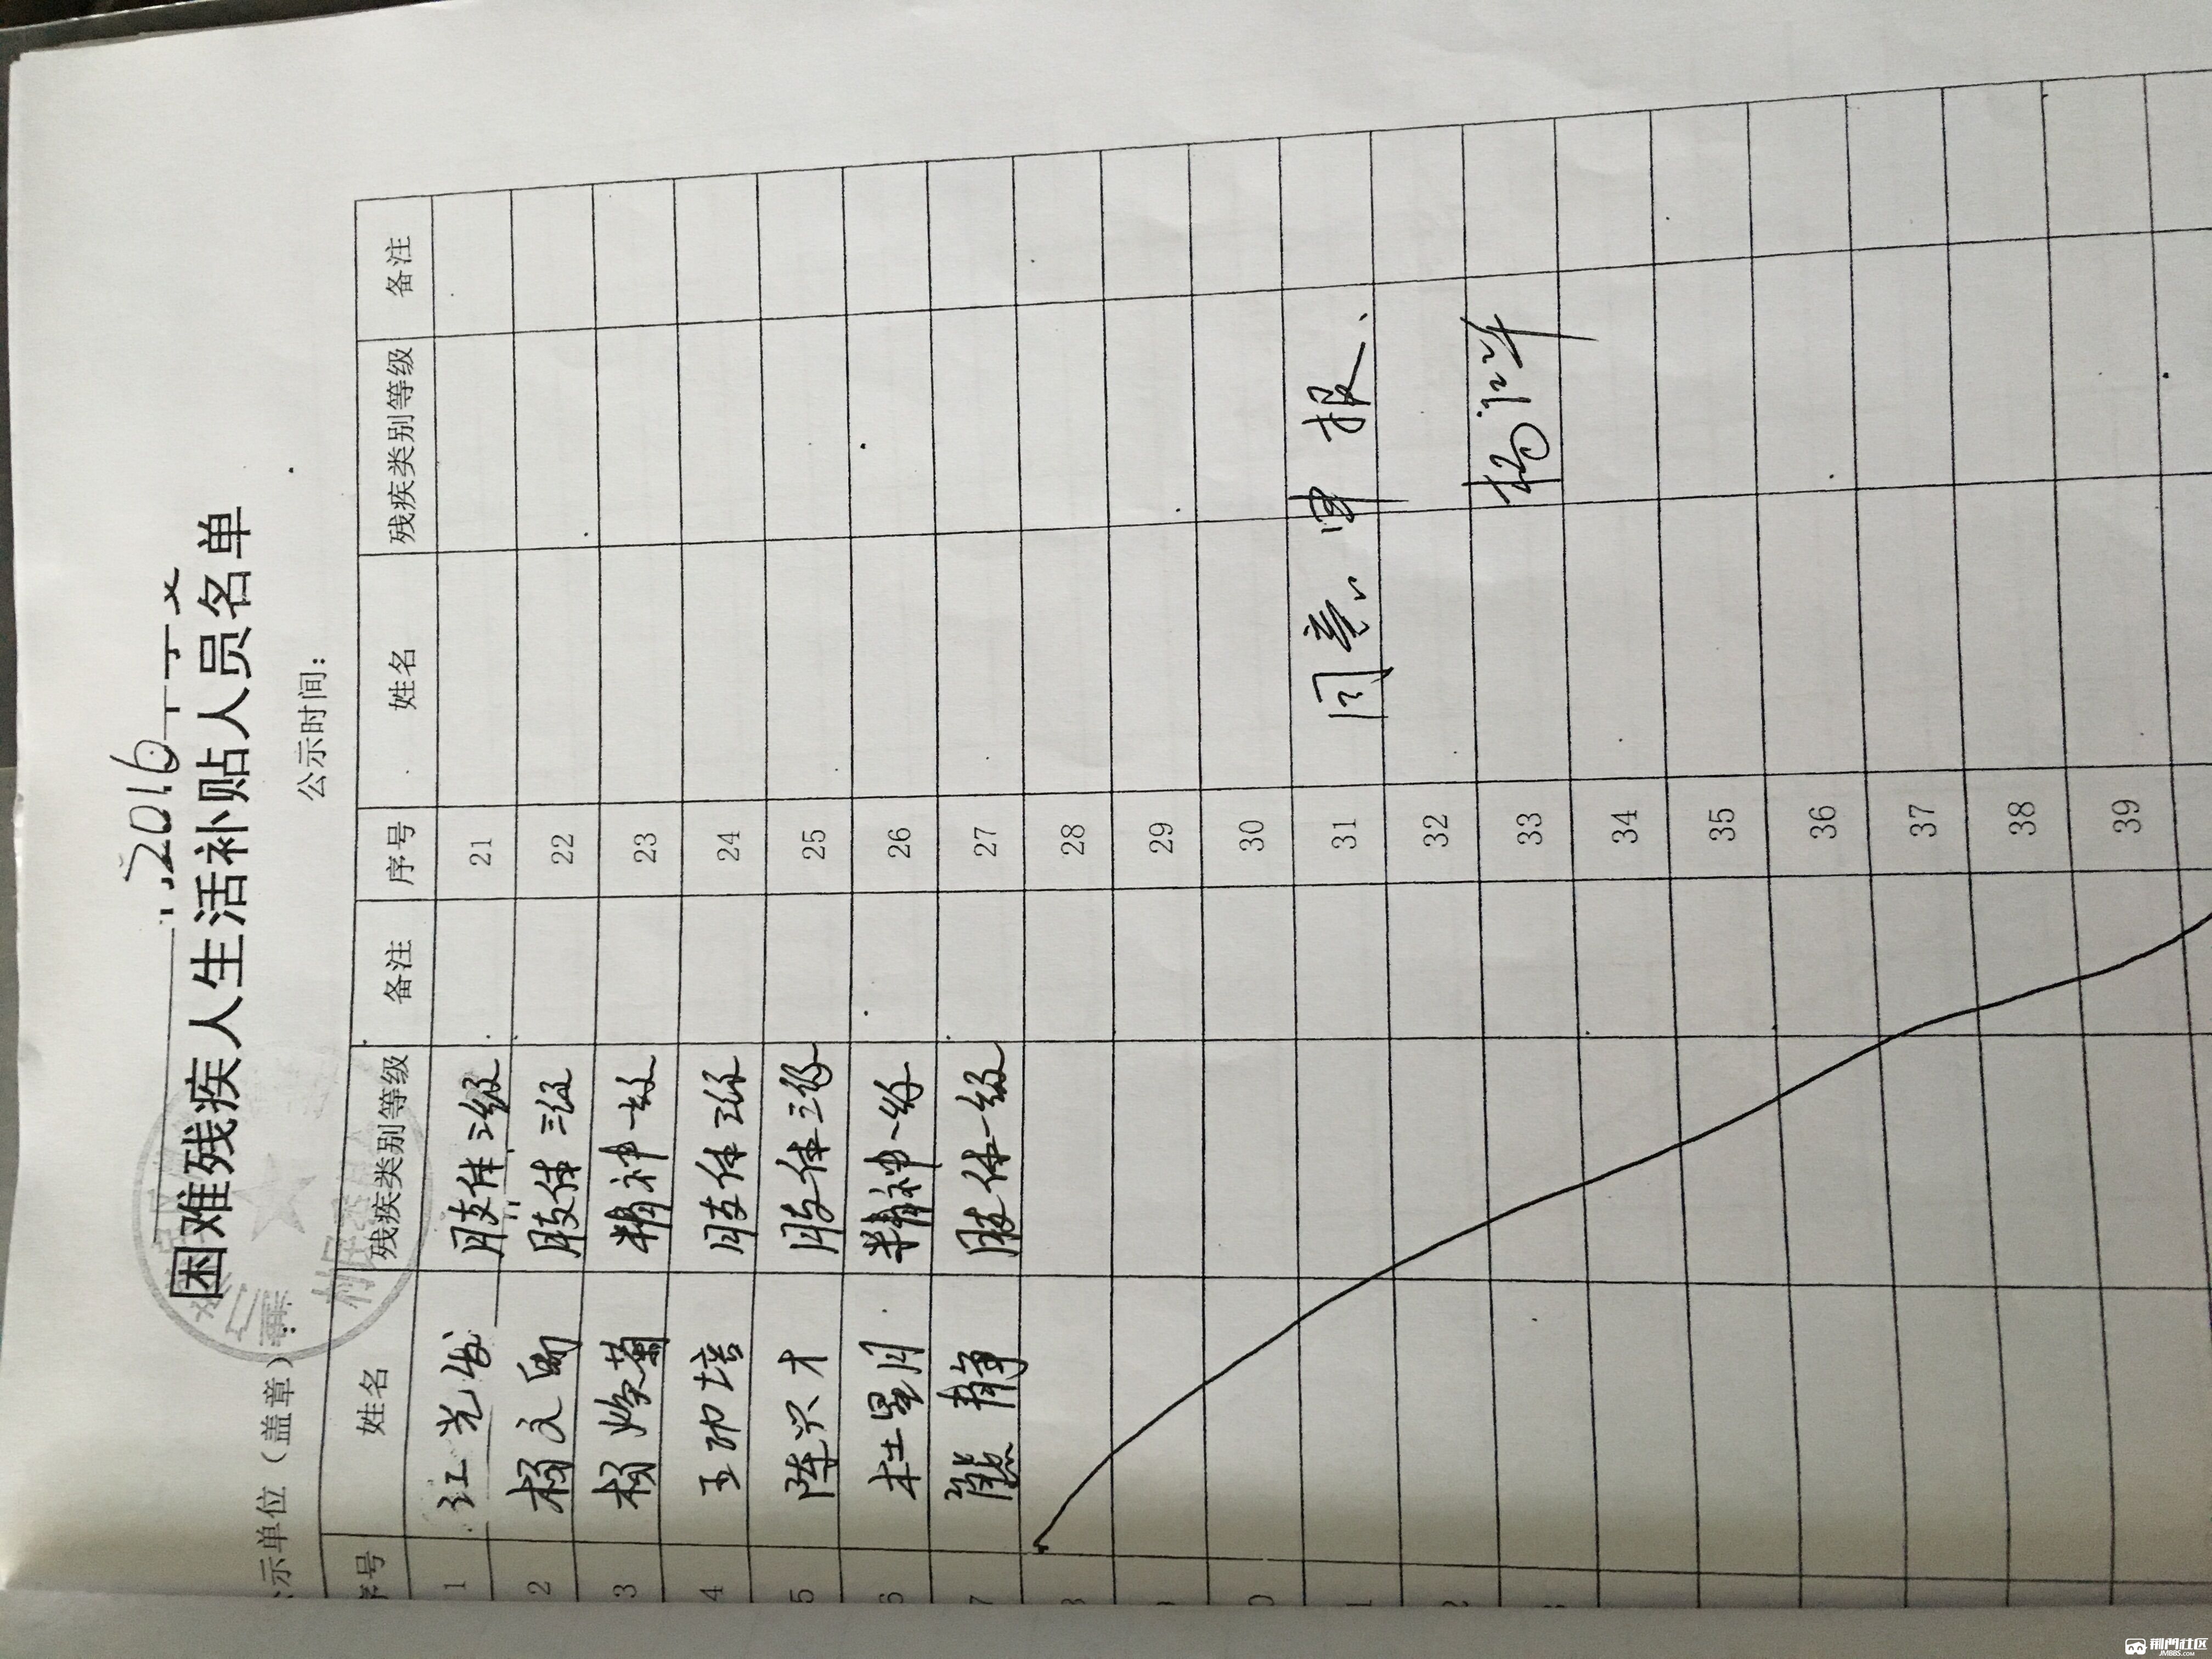 2016年
困难残疾人生活补贴人员名单
示单位（盖章）： 公示时间：
序号 姓名 残疾类别等级 备注 序号 姓名 残疾类别等级 备注
1 江光 肢体三级 21
2 杨文 肢体三级 22
3 杨焕菊 精神一级 23
4 王功培 肢体三级 24
5 陈兴才 肢体三级 25
6 杜星月 精神一级 26
7 熊静 肢体一级 27
28
29
30
31 同意申报、
32
33 杨
34
35
36
37
38
39
村民
荆门社区
JMBBS.COM